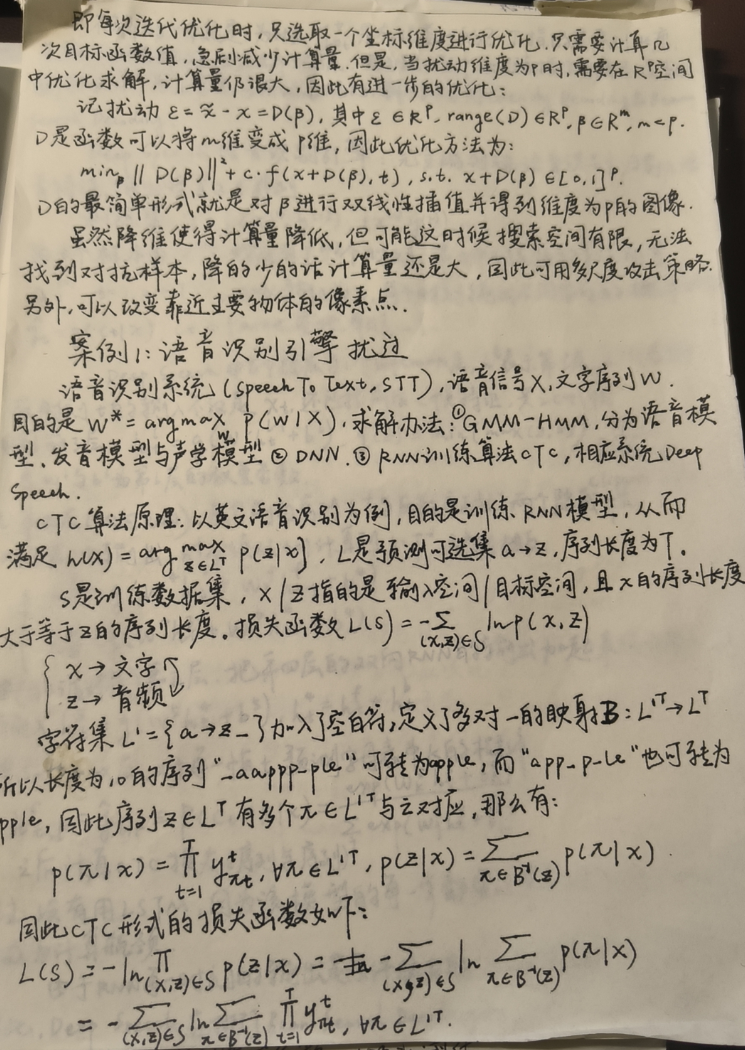 即每次迭代优化时,只选取一个坐标维度进行优化.只需要计算几
次目标函数值,急剧减少计算量.但是,当扰动维度为p时,需要在Rᵖ空间
中优化求解,计算量仍很大,因此有进一步的优化:
记扰动 ε = x̃ - x = D(β), 其中 ε ∈ Rᵖ, range(D) ∈ Rᵖ, β ∈ Rᵐ, m<p.
D是函数可以将m维变成p维,因此优化方法为:
min_β ‖D(β)‖² + c·f(x+D(β),t), s.t. x+D(β) ∈ [0,1]ᵖ.
D的最简单形式就是对β进行双线性插值并得到维度为p的图像.
虽然降维使得计算量降低,但可能这时候搜索空间有限,无法
找到对抗样本,降的少的话计算量还是大,因此可用多尺度攻击策略.
另外,可以改变靠近主要物体的像素点.
案例1:语音识别引擎扰过
语音识别系统(Speech To Text, STT),语音信号X,文字序列W.
目的是 W* = argmax_W p(W|X),求解办法:①GMM-HMM,分为语音模
型、发音模型与声学模型 ② DNN. ③ RNN训练算法CTC,相应系统Deep
Speech.
CTC算法原理:以英文语音识别为例,目的是训练RNN模型,从而
满足 h(x) = arg max_{z∈Lᵀ} p(z|x), L是预测可选集a→z,序列长度为T.
S是训练数据集, X/Z指的是输入空间/目标空间,且x的序列长度
大于等于z的序列长度.损失函数L(S) = -∑_{(x,z)∈S} ln p(x,z)
{ x→文字
z→音频
字符集L' = {a→z _}加入了空白符,定义了多对一的映射B: L'ᵀ→Lᵀ
所以长度为10的序列"_aappp-ple"可转为apple,而"app_p-le"也可转为
pple,因此序列z∈Lᵀ有多个π∈L'ᵀ与之对应,那么有:
p(π|x) = ∏_{t=1}^T y^t_{πt}, ∀π∈L'ᵀ, p(z|x) = ∑_{π∈B⁻¹(z)} p(π|x)
因此CTC形式的损失函数如下:
L(S) = -ln ∏_{(x,z)∈S} p(z|x) = -∑_{(x,z)∈S} ln ∑_{π∈B⁻¹(z)} p(π|x)
= -∑_{(x,z)∈S} ln ∑_{π∈B⁻¹(z)} ∏_{t=1}^T y^t_{πt}, ∀π∈L'ᵀ.